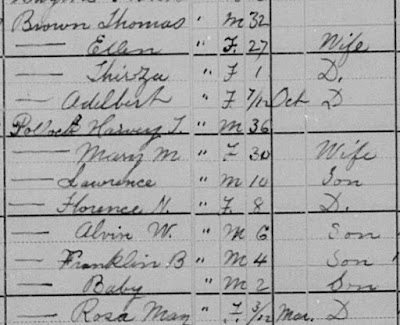 Brown Thomas " M 32
— Ellen " F. 27 Wife
— Thirza " F 1 D.
— Adelbert " F 7/12 Oct D
Pollock Harvey T. " M 36
— Mary M " F 30 Wife
— Lawrence " M 10 Son
— Florence N. " F. 8 D.
— Alvin W. " M 6 Son
— Franklin B " M 4 Son
— Baby " M 2 Son
— Rosa May " F. 3/12 Mar. D